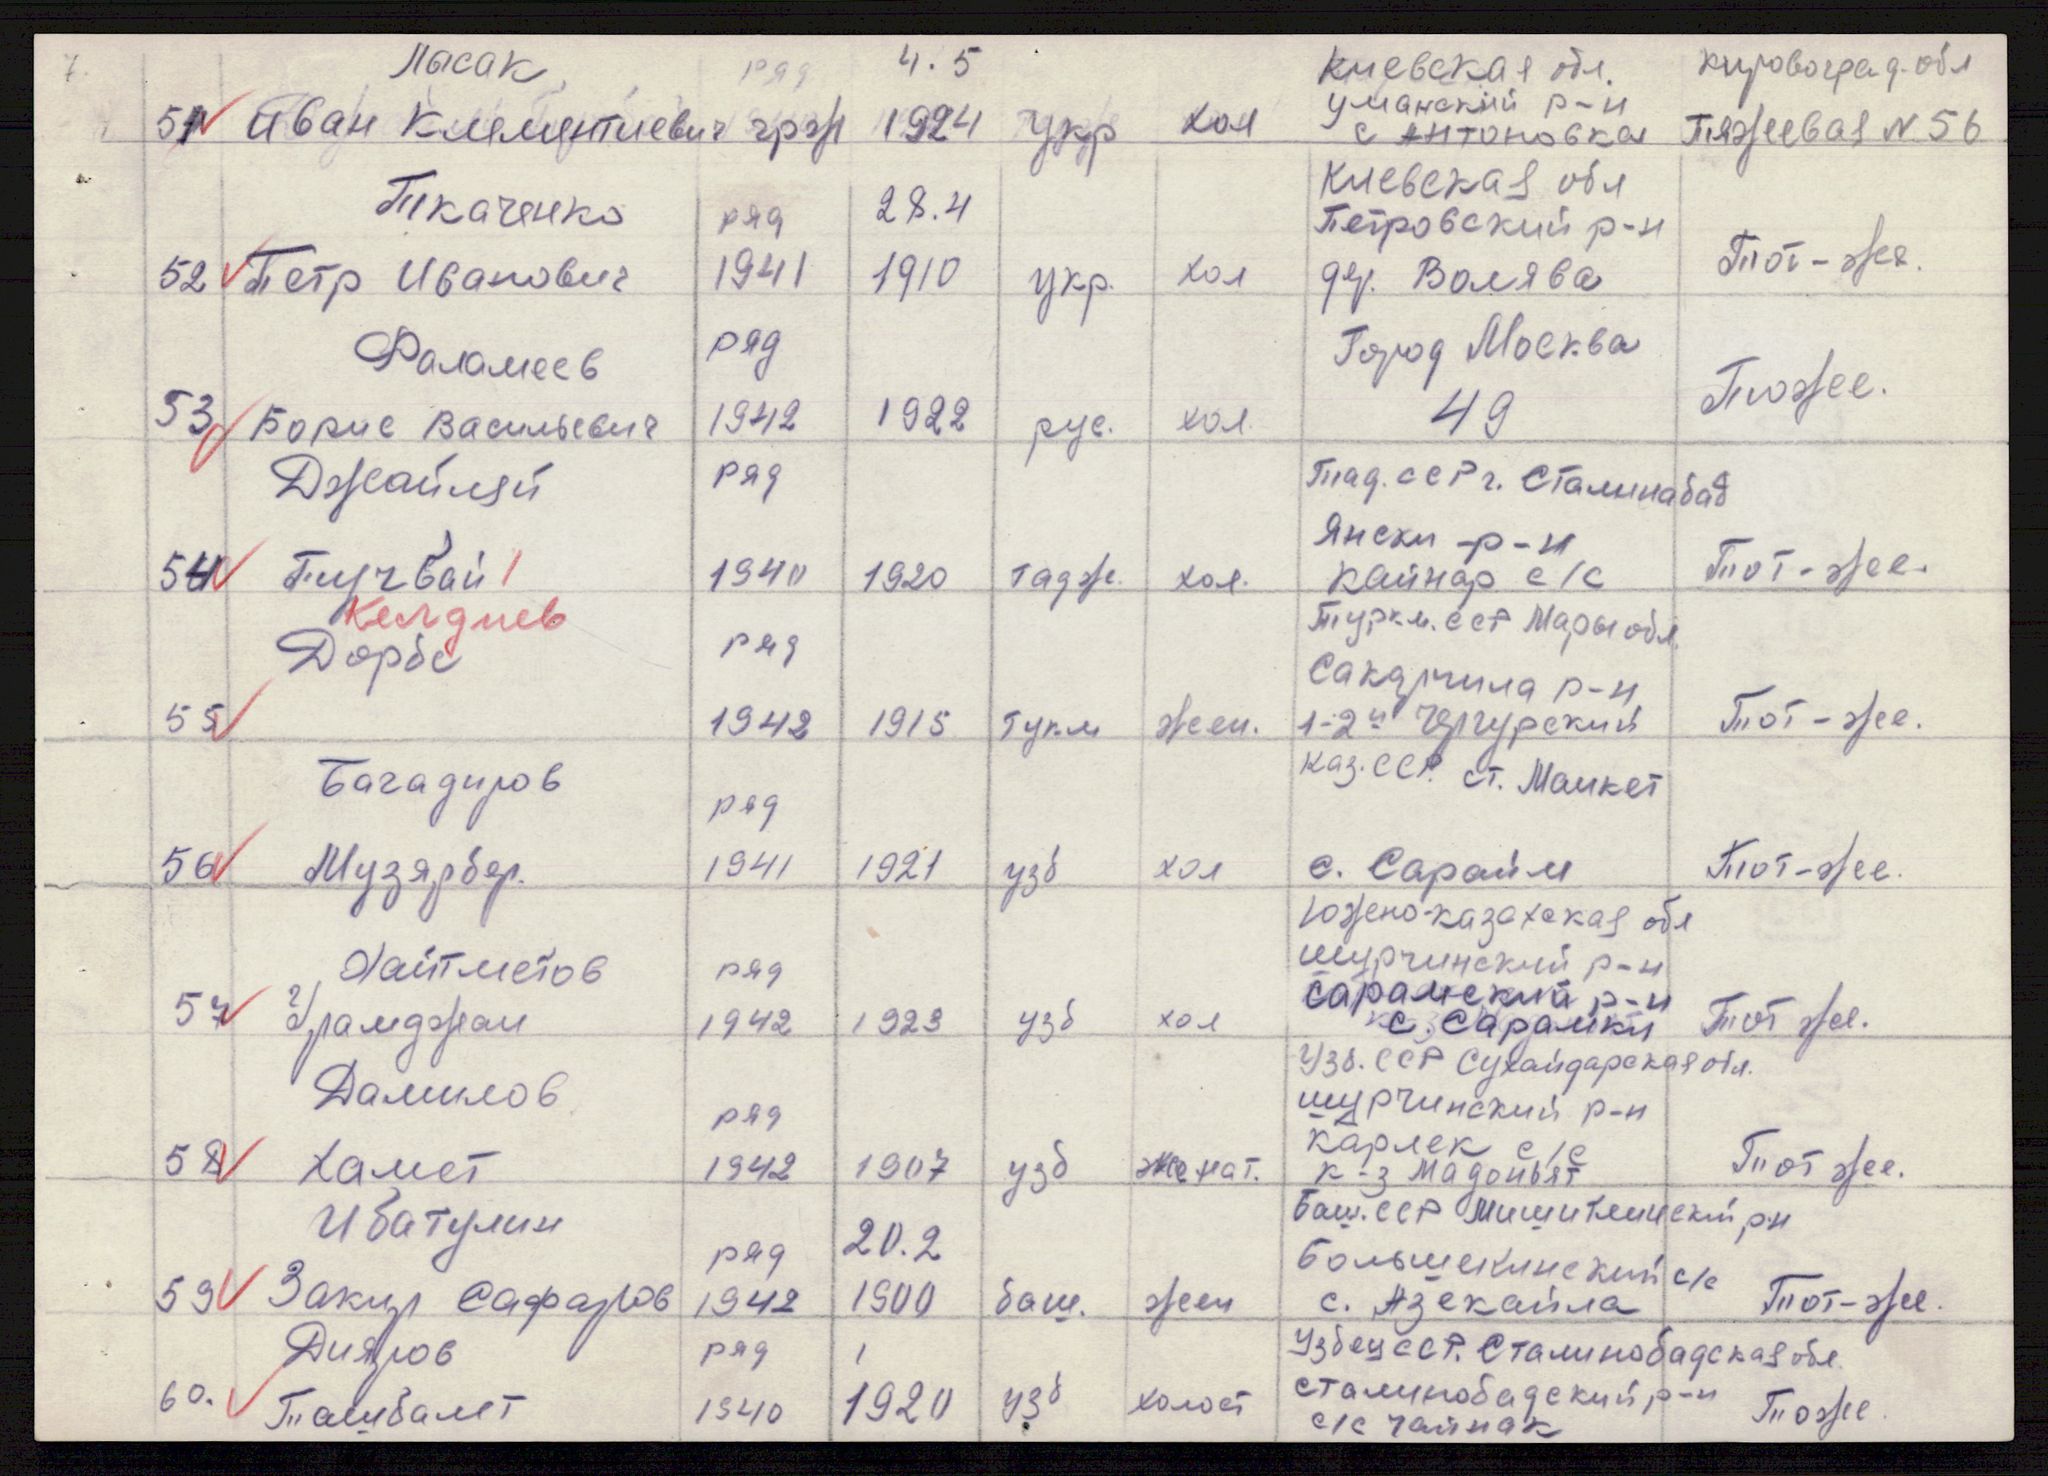 7.
Лысак ряд 4.5 Киевская обл. Кировоград. обл
51 Иван Клементиевич грж 1924 укр хол Уманский р-н с Антоновка Пяжевая N 56
Ткаченко ряд 28.4 Киевская обл
Петровский р-н
52 Петр Иванович 1941 1910 укр. хол дер. Волява Тот-же.
Фаламеев ряд Город Москва
53 Борис Васильевич 1942 1922 рус. хол. 49 Тоже.
Джайляй ряд Тад. ССР г. Сталинабад
Янски-р-н
54 Тучбай 1940 1920 тадж. хол. Кайнар с/с Тот-же.
Келдиев
Дорбе ряд Туркм. ССР Мары обл.
Сакарчила р-н
55 1942 1915 тукм жен. 1-2й Чергурский Тот-же.
Багадиров ряд Каз. ССР. ст. Манкет
56 Музярбер. 1941 1921 узб хол с. Сарайм Тот-же.
Южено-казахская обл
Хайтметов ряд шурчинский р-н
Сарамский р-н
57 Урамджан 1942 1923 узб хол с. Сарамки Тот же.
Узб. ССР Сухайдарская обл.
Дамилов ряд шурчинский р-н
Карлек с/с
58 Хамет 1942 1907 узб женат. к-з Мадоньят Тот же.
Ибатулин Баш. ССР Мишитлинский р-н
ряд 20.2 Большекинский с/с
59 Закир Сафаров 1942 1900 баш. жен с. Азекайла Тот-же.
Дияров ряд Узбец ССР. Сталинобадская обл.
60. Ташбалет 1940 1920 узб холост сталинобадский р-н Тоже.
с/с чайнак